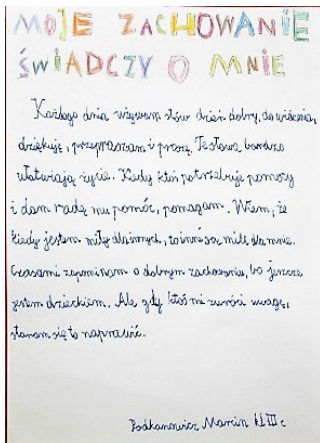 MOJE ZACHOWANIE
ŚWIADCZY O MNIE
Każdego dnia używam słów dzień dobry, do widzenia,
dziękuję, przepraszam i proszę. Te słowa bardzo
ułatwiają życie. Kiedy ktoś potrzebuje pomocy
i dam radę mu pomóc, pomagam. Wiem, że
kiedy jestem miły dla innych, to inni są mili dla mnie.
Czasami zapominam o dobrym zachowaniu, bo jeszcze
jestem dzieckiem. Ale gdy ktoś mi zwróci uwagę,
staram się to naprawić.
Podkanowicz Marcin kl III c